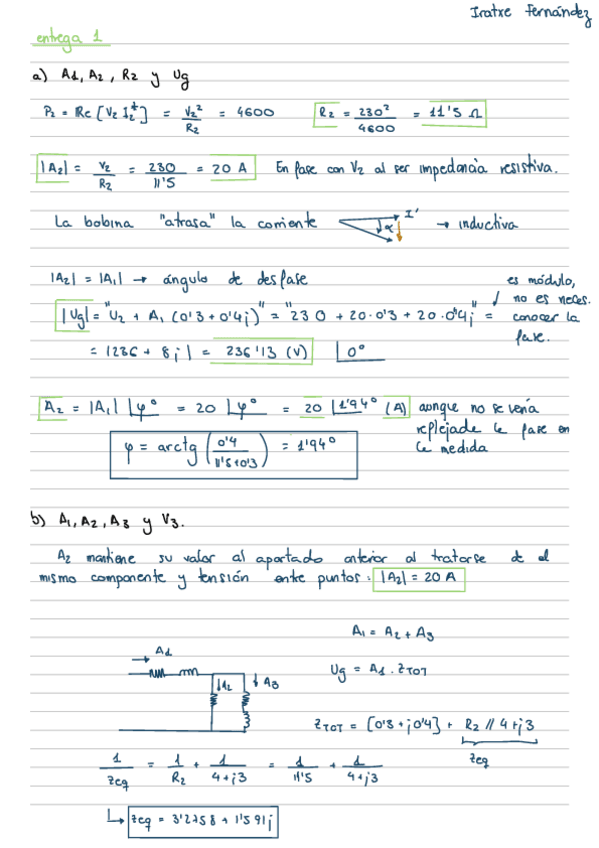 Iratxe Fernández
entrega 1
a) A1, A2, R2 y Ug
P2 = Re [V2 I2*] = V2²/R2 = 4600 R2 = 230²/4600 = 11'5 Ω
|A2| = V2/R2 = 230/11'5 = 20 A En fase con V2 al ser impedancia resistiva.
La bobina "atrasa" la corriente I' α → inductiva
|A2| = |A1| → ángulo de desfase
es módulo, no es neces. conocer la fase.
|Ug| = "U2 + A1 (0'3 + 0'4j)" = "230 + 20·0'3 + 20·0'4j" =
= |236 + 8j| = 236'13 (V) |0°
A2 = |A1| |φ° = 20 |φ° = 20 |1'94° (A) aunque no se vería
replejada le fase en
le medida
φ = arctg (0'4/11'5+0'3) = 1'94°
b) A1, A2, A3 y V3.
A2 mantiene su valor al apartado anterior al tratarse de el
mismo componente y tensión entre puntos: |A2| = 20 A
A1 = A2 + A3
A1
A2 A3
Ug = A1 · ZTOT
ZTOT = [0'3 + j0'4] + R2 // 4+j3
Zeq
1/Zeq = 1/R2 + 1/4+j3 = 1/11'5 + 1/4+j3
↳ Zeq = 3'2758 + 1'591j